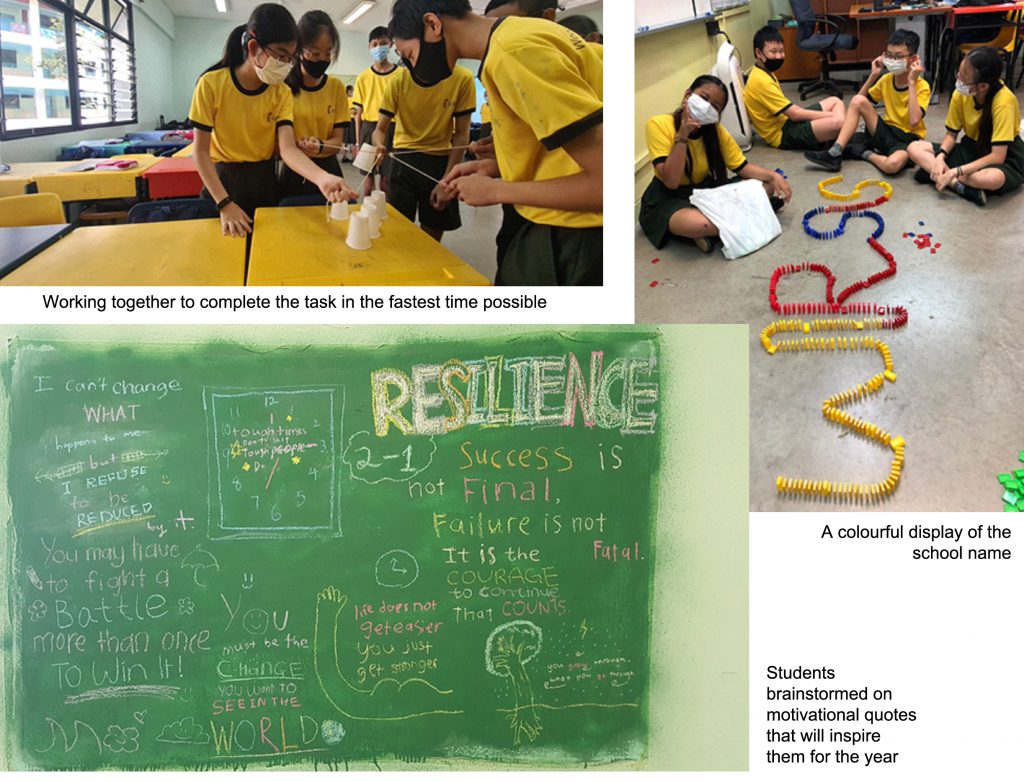 Working together to complete the task in the fastest time possible
A colourful display of the
school name
I can't change
WHAT
happens to me
but
I REFUSE
to be
REDUCED
by it.
You may have
to fight a
Battle
more than once
TO WIN It!
12
11
1
10
2
9
3
8
4
7
5
6
tough times
don't last
Tough people
Do
RESILIENCE
2-1
Success is
not Final,
Failure is not
Fatal.
It is the
COURAGE
to continue
That COUNTS.
YOU
must be the
CHANGE
YOU WANT TO
SEE IN THE
WORLD
life does not
get easer
you just
get stronger
you grow through
what you go through
Students
brainstormed on
motivational quotes
that will inspire
them for the year